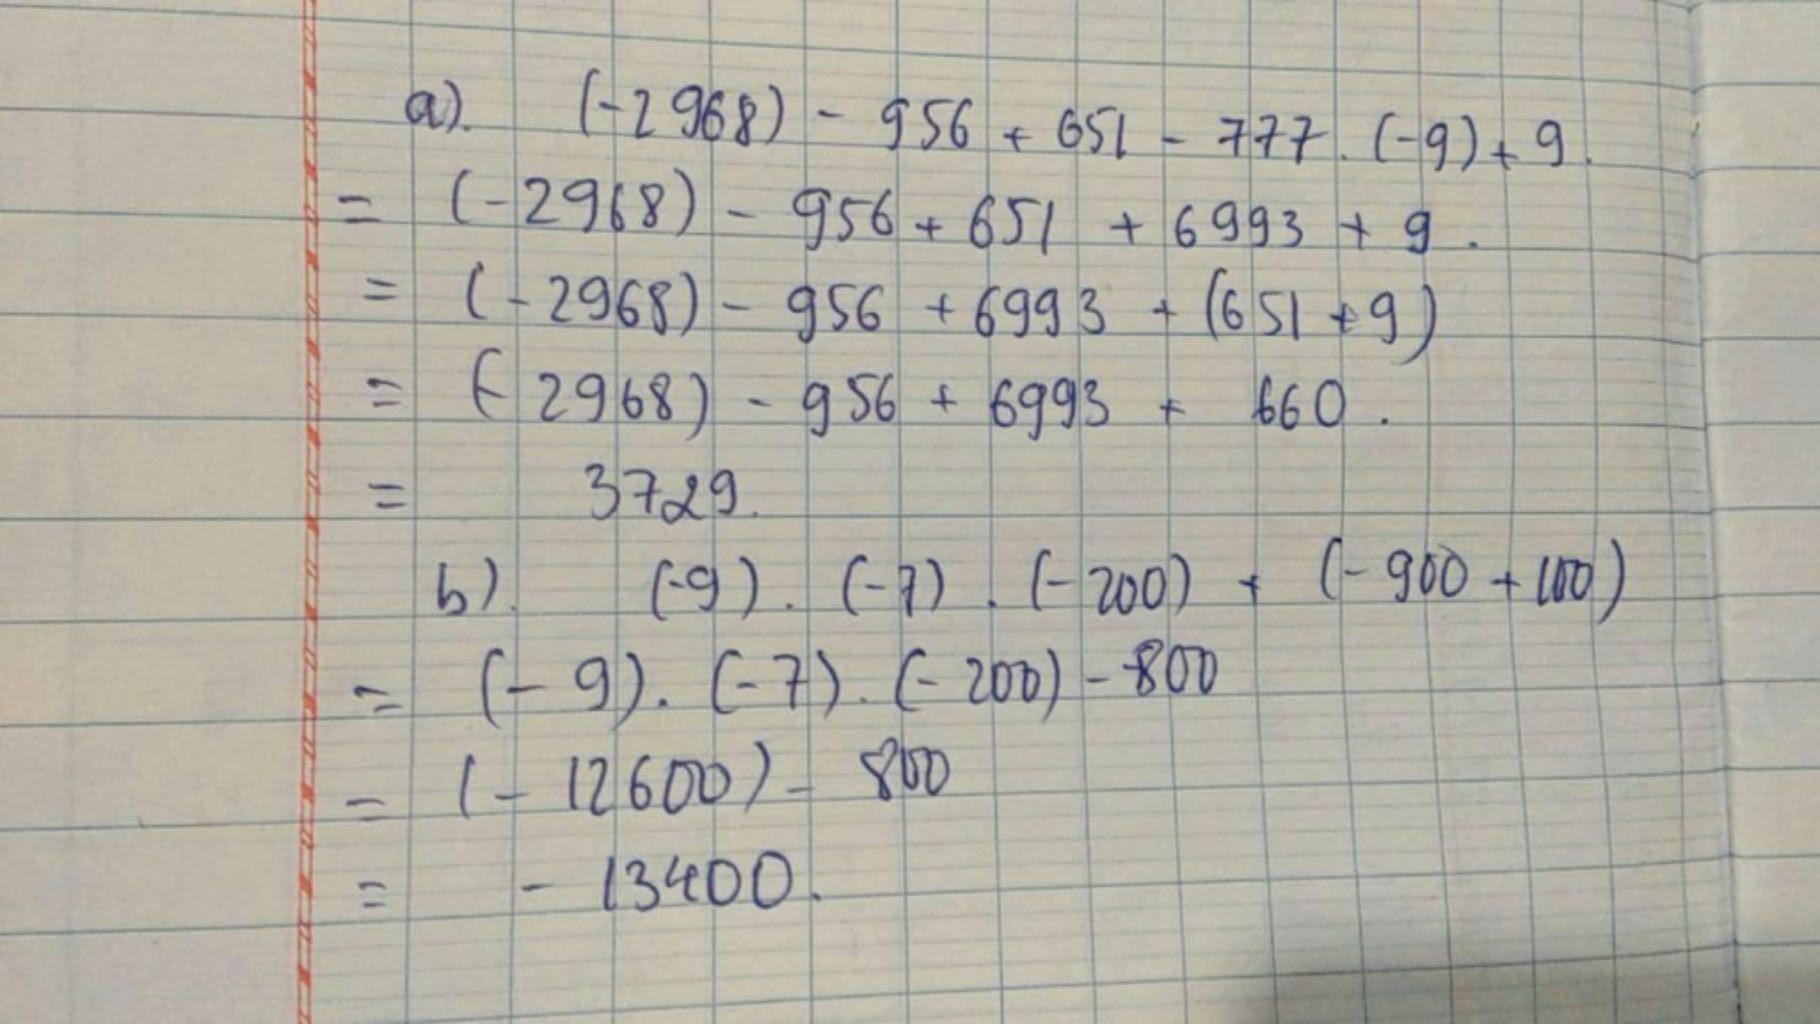 a). (-2968) - 956 + 651 - 777 . (-9) + 9.
= (-2968) - 956 + 651 + 6993 + 9.
= (-2968) - 956 + 6993 + (651 + 9)
= (-2968) - 956 + 6993 + 660.
= 3729.
b). (-9) . (-7) . (-200) + (-900 + 100)
= (-9) . (-7) . (-200) - 800
= (-12600) - 800
= - 13400.